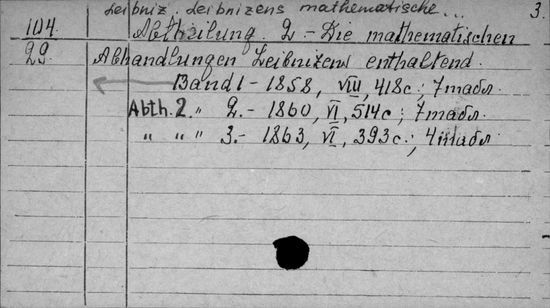 Leibniz. Leibnizens mathematische... 3.
104. Abtheilung. 2. - Die mathematischen
29 Abhandlungen Leibnizens enthaltend.
Band 1 - 1858, VIII, 418с.; 7табл.
Abth. 2. „ 2. - 1860, VI, 514с.; 7табл.
„ „ „ 3. - 1863, VI, 393с.; 4табл.